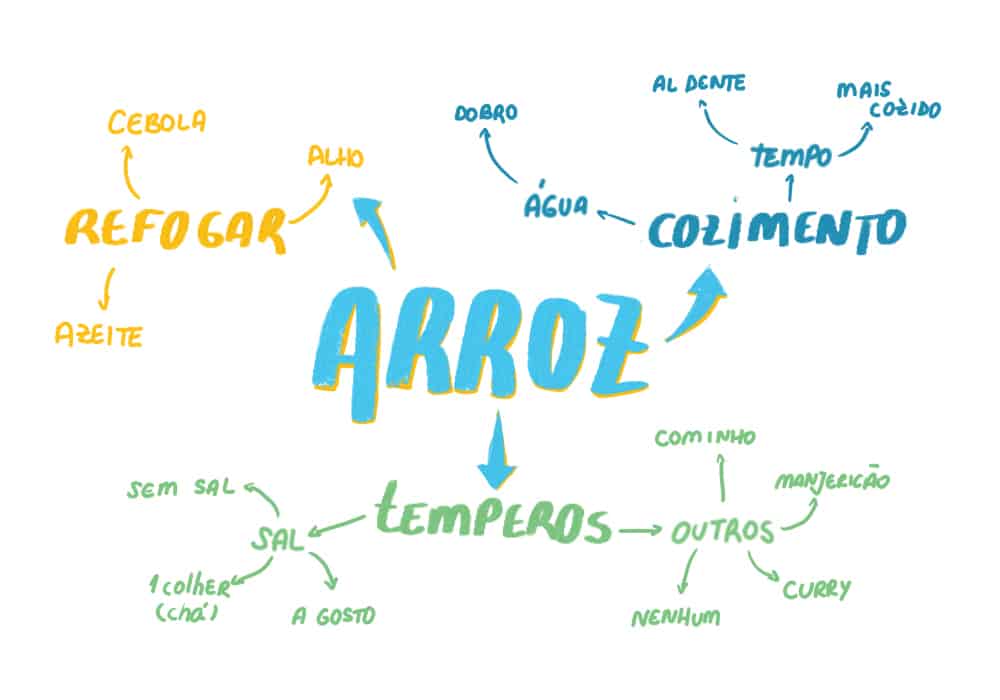 CEBOLA
ALHO
REFOGAR
AZEITE
DOBRO
AL DENTE
MAIS
COZIDO
TEMPO
ÁGUA
COZIMENTO
ARROZ
TEMPEROS
SEM SAL
SAL
1 colher
(chá)
A GOSTO
COMINHO
MANJERICÃO
OUTROS
NENHUM
CURRY